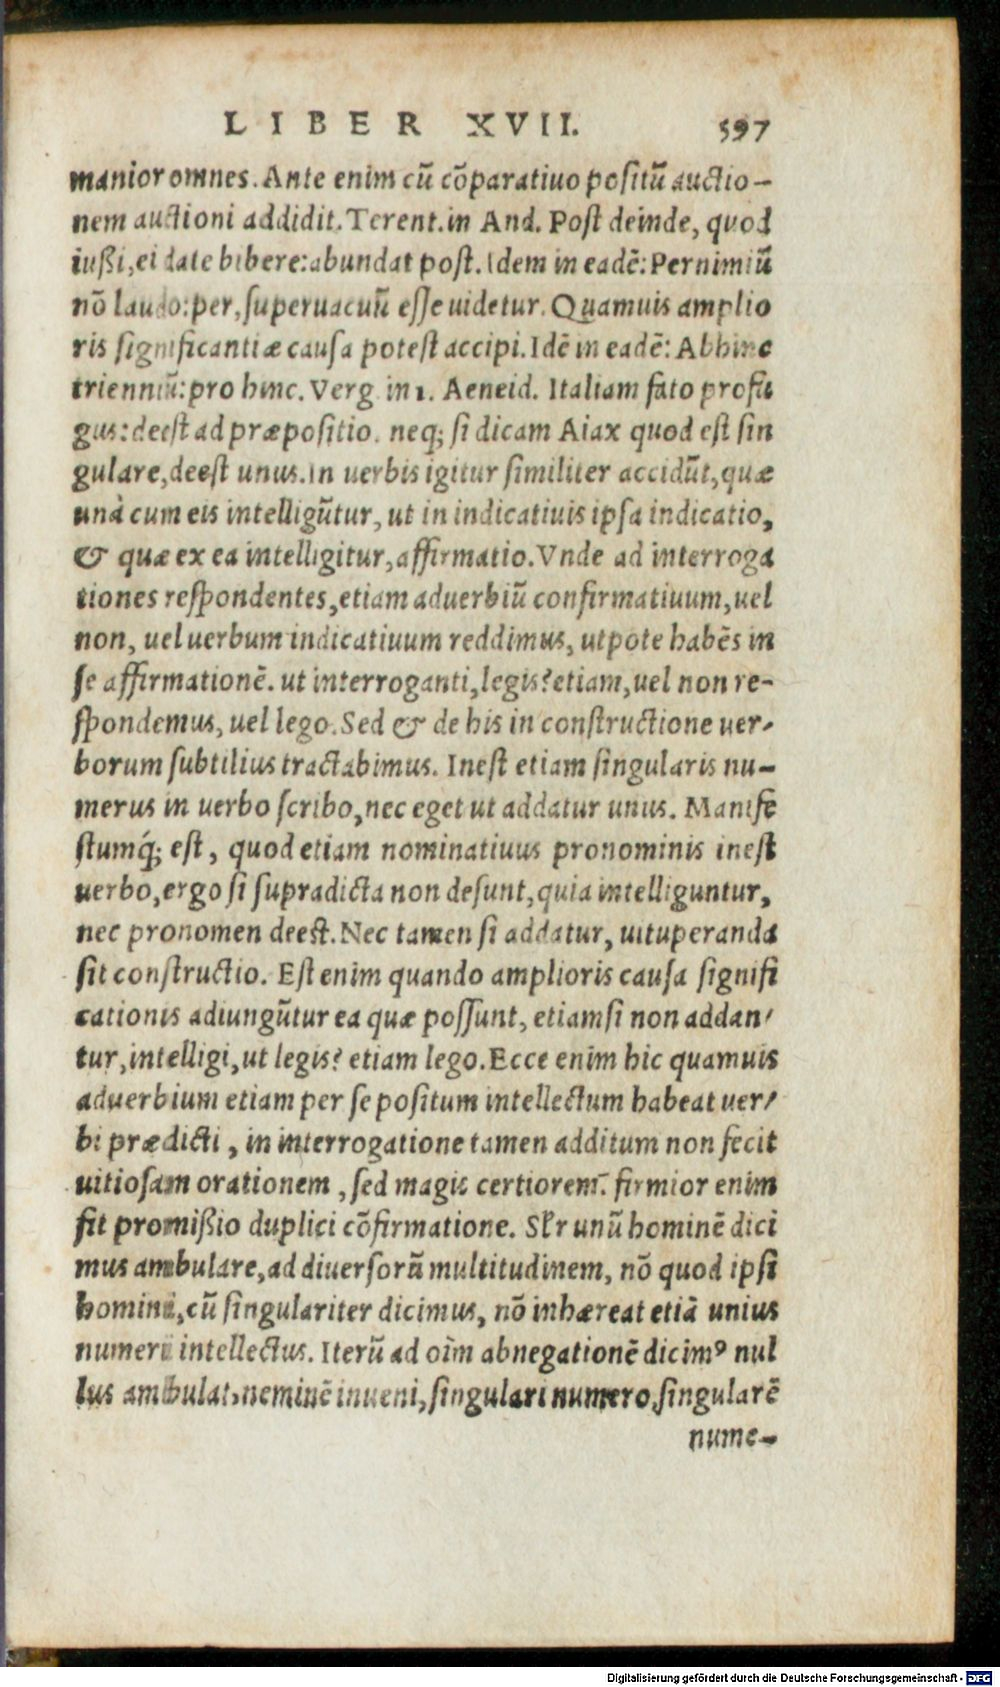 LIBER XVII. 597
manior omnes. Ante enim cũ cõparatiuo positũ auctio-
nem auctioni addidit. Terent. in And. Post deinde, quod
iußi, ei date bibere: abundat post. Idem in eadẽ: Pernimiũ
nõ laudo: per, superuacuũ esse uidetur. Quamuis amplio
ris significantiæ causa potest accipi. Idẽ in eadẽ: Abhinc
trienniũ: pro hinc. Verg. in 1. Aeneid. Italiam fato profu
gus: deest ad præpositio. neq; si dicam Aiax quod est sin
gulare, deest unus. In uerbis igitur similiter accidũt, quæ
unà cum eis intelligũtur, ut in indicatiuis ipsa indicatio,
& quæ ex ea intelligitur, affirmatio. Vnde ad interroga
tiones respondentes, etiam aduerbiũ confirmatiuum, uel
non, uel uerbum indicatiuum reddimus, utpote habẽs in
se affirmationẽ. ut interroganti, legis? etiam, uel non re-
spondemus, uel lego. Sed & de his in constructione uer-
borum subtilius tractabimus. Inest etiam singularis nu-
merus in uerbo scribo, nec eget ut addatur unus. Manife
stumq́; est, quod etiam nominatiuus pronominis inest
uerbo, ergo si supradicta non desunt, quia intelliguntur,
nec pronomen deest. Nec tamen si addatur, uituperanda
sit constructio. Est enim quando amplioris causa signifi
cationis adiungũtur ea quæ possunt, etiamsi non addan-
tur, intelligi, ut legis? etiam lego. Ecce enim hic quamuis
aduerbium etiam per se positum intellectum habeat uer-
bi prædicti, in interrogatione tamen additum non fecit
uitiosam orationem, sed magis certiorem: firmior enim
fit promißio duplici cõfirmatione. Sĩr unũ hominẽ dici
mus ambulare, ad diuersorũ multitudinem, nõ quod ipsi
homini, cũ singulariter dicimus, nõ inhæreat etiã unius
numeri intellectus. Iterũ ad oĩm abnegationẽ dicimꝰ nul
lus ambulat, neminẽ inueni, singulari numero, singularẽ
nume-
Digitalisierung gefördert durch die Deutsche Forschungsgemeinschaft - DFG